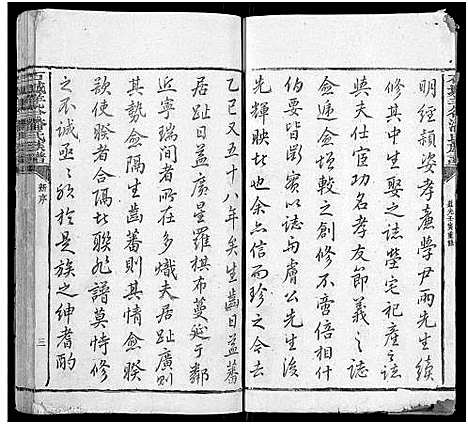 明經穎姿孝廉學尹兩先生續
修其中生娶之誌塋宅祀產之誌
與夫仕宦功名孝友節義之誌
僉遞僉增較之創修不啻倍相什
百皆斷實以誌與膚公先生後
先輝映也余亡信而珍之今去
乙巳又五十八年矣生齒日益蕃
居趾日益廣星羅棋布蔓延于鄰
近寧瑞間者所在多熾夫居趾廣則
其勢僉隔生齒蕃則其情僉睽
欲使睽者合隔者聯非譜莫恃修
之不誠亟亟欤於是族之紳耆酌
新序
三